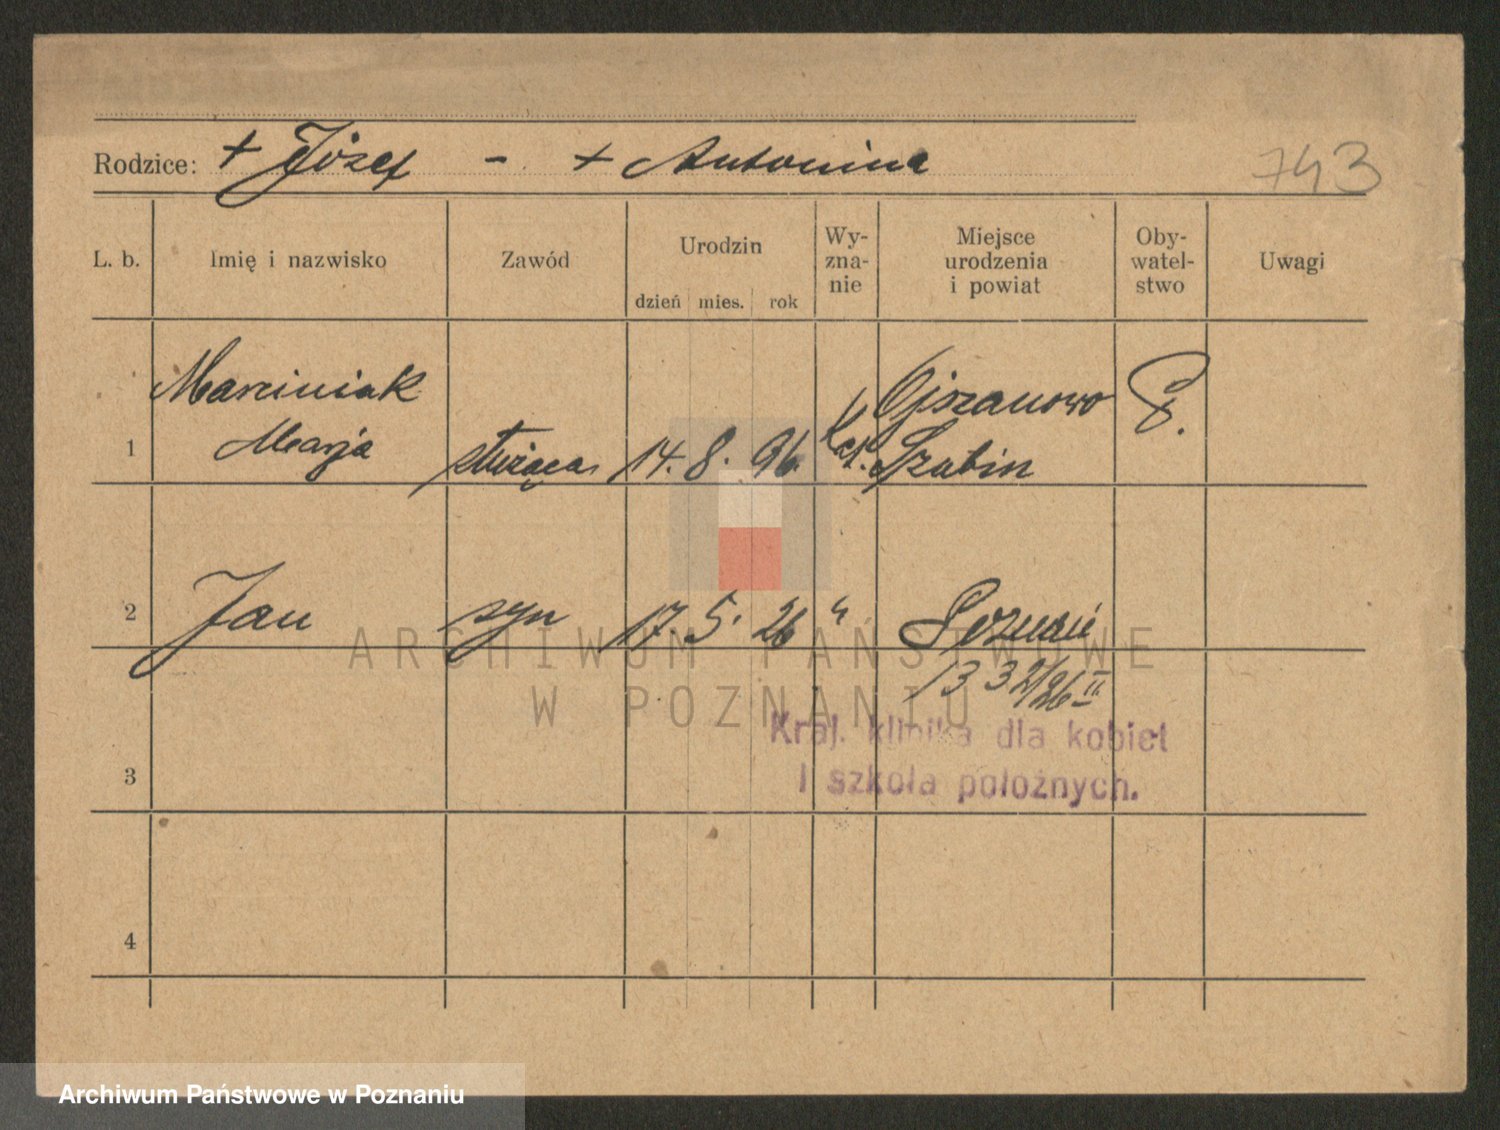 Rodzice: + Józef - + Antonina
743
L. b.
Imię i nazwisko
Zawód
Urodzin
dzień mies. rok
Wy-
zna-
nie
Miejsce
urodzenia
i powiat
Oby-
watel-
stwo
Uwagi
1
Marciniak
Marja
służąca
14. 8. 96.
kat.
Ojrzanowo
Szubin
P.
2
Jan
syn
17. 5. 26
"
Poznań
1332/26 II
Kraj. klinika dla kobiet
i szkoła położnych.
3
4
ARCHIWUM PAŃSTWOWE
W POZNANIU
Archiwum Państwowe w Poznaniu